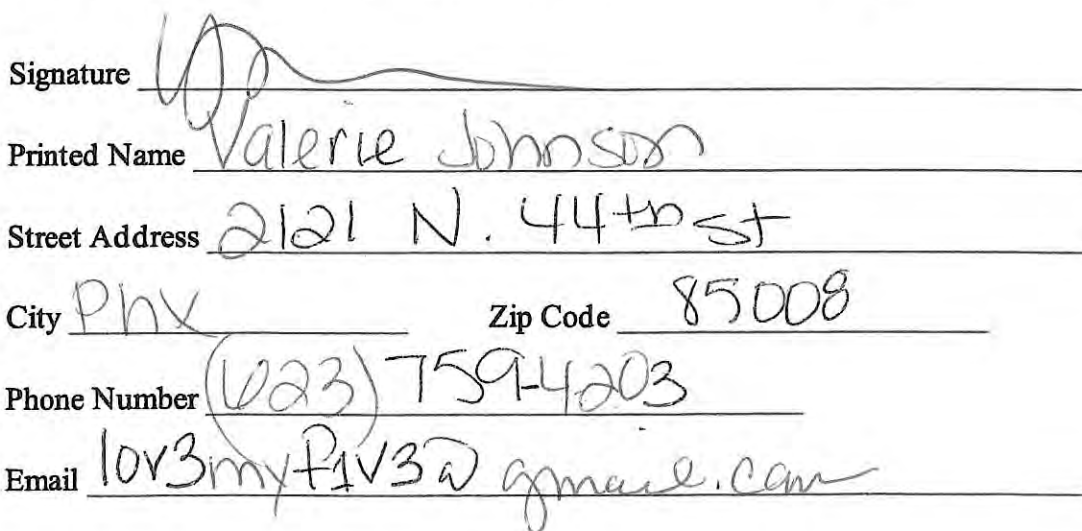 Signature
Printed Name Valerie Johnson
Street Address 2121 N. 44th St
City Phx Zip Code 85008
Phone Number (623) 759-4203
Email lov3myf1v3@gmail.com